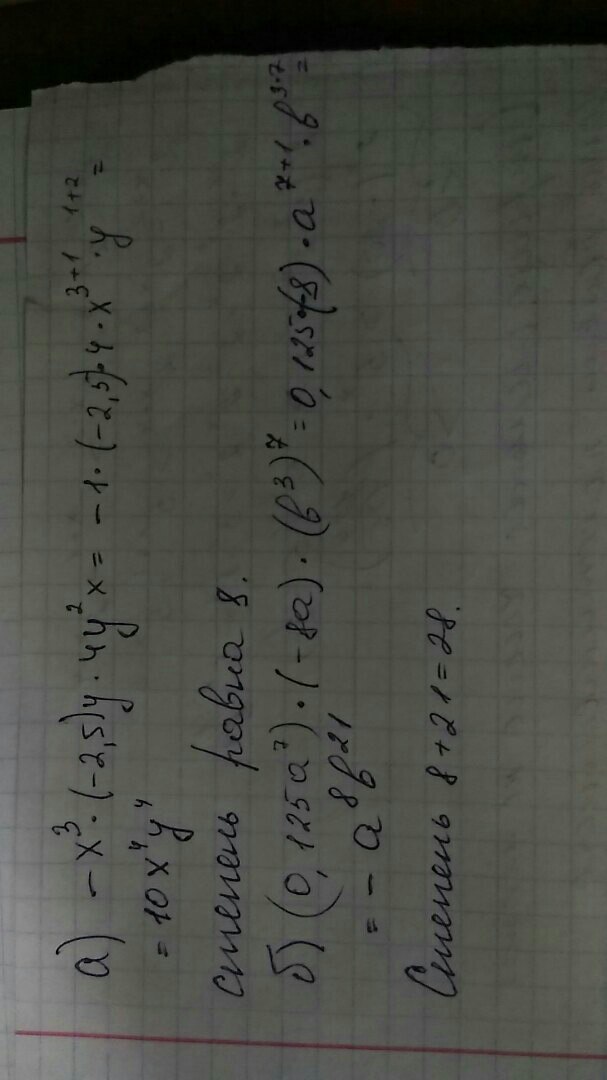 а) -x³·(-2,5)y·4y²x = -1·(-2,5)·4·x³⁺¹·y¹⁺² =
= 10x⁴y⁴
степень равна 8.
б) (0,125a⁷)·(-8a)·(b³)⁷ = 0,125·(-8)·a⁷⁺¹·b³·⁷ =
= - a⁸b²¹
Степень 8+21=28.